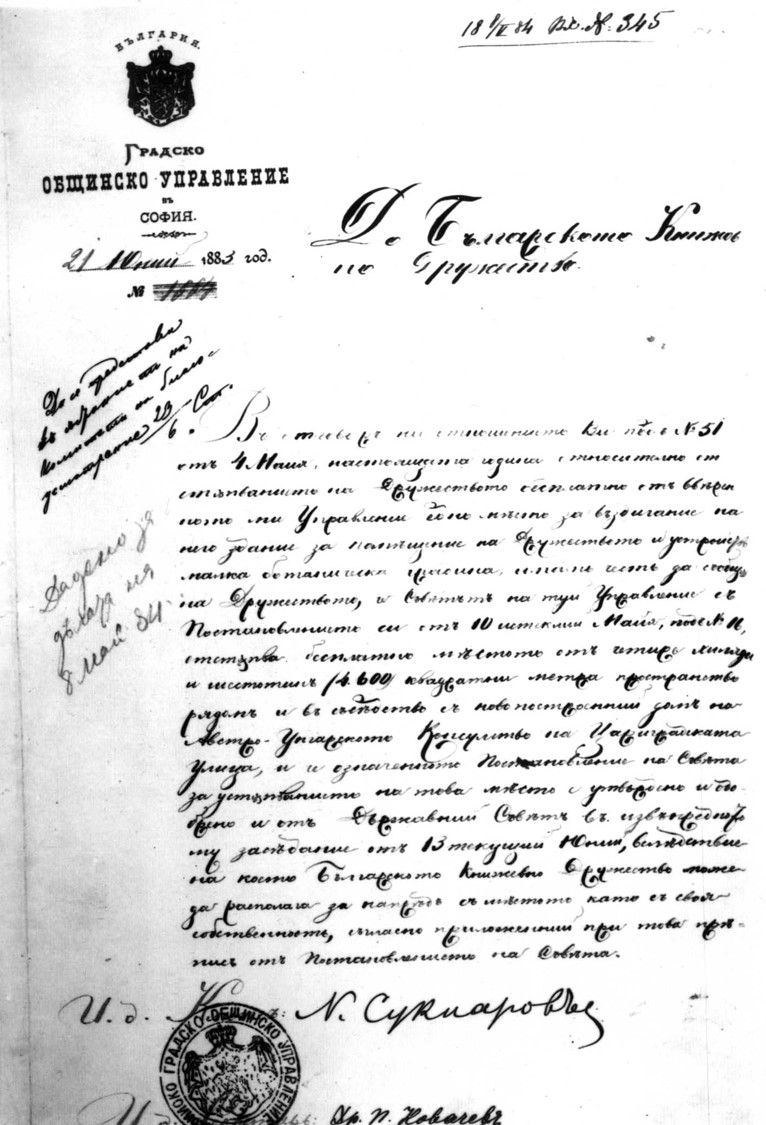 18 9/II 84 Вх. №: 345
БЪЛГАРИЯ.
ГРАДСКО
ОБЩИНСКО УПРАВЛЕНИЕ
ВЪ
СОФИЯ.
21 Юний 1883 год.
№
До Българското Книжов
но Дружество.
Да се представи
въ на
комитета на благо-
23/6. Сот.
Дадено за
8 май 84
Въ отговоръ на отношението Ви подъ № 51
отъ 4 Майя, настоящата година относително от
стѫпванието на Дружеството безплатно отъ ввѣрен
ното ми Управление едно мѣсто за въздигание на
него здание за помѣщение на Дружеството и
малка ботаническа градина, имамъ честь да съобщѫ
на Дружеството, че Съвѣтътъ на туй Управление съ
Постановлението си отъ 10 истеклий Майя, подъ № 11,
отстѫпва безплатно мѣстото отъ четирь хиляди
и шестотинъ (4.600) квадратни метра пространство
рядомъ и въ съсѣдство съ новопостранний домъ на
Австро-Унгарското Консулство на Цариградската
Улица, и че означенното Постановление на Съвѣта
за устѫпванието на това мѣсто е утвърдено и одо-
брено и отъ Държавний Съвѣтъ въ
му засѣдание отъ 13 текущий Юний, вслѣдствие
на което Българското Книжевно Дружество може
да располага за напрѣдъ съ мѣстото като съ своя
собственность, съгласно приложенний при това прѣ-
писъ отъ Постановлението на Съвѣта.
И. д. К : Н. Сукнаровъ
ГРАДСКО-ОБЩИНСКО УПРАВЛЕНИЕ
И : Хр. П. Ковачевъ